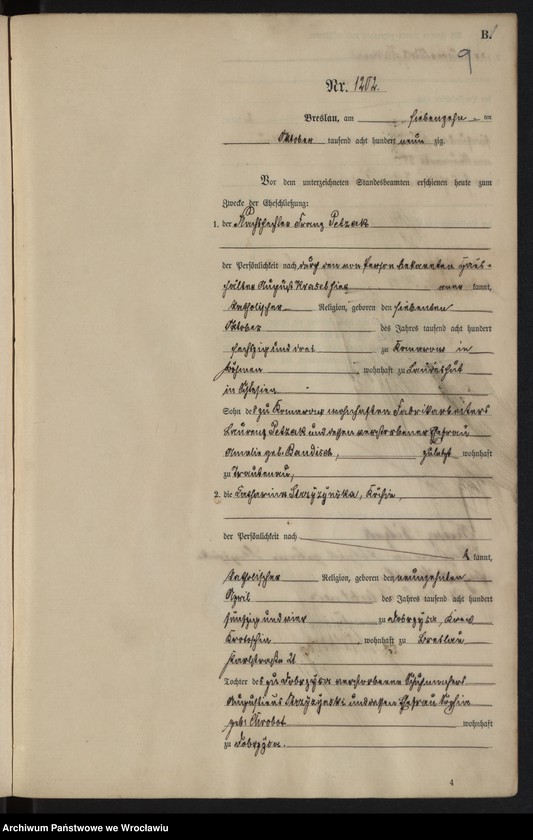 B.
9
Nr. 1202.
Breslau, am siebenzehn ten
Oktober tausend acht hundert neun zig.
Vor dem unterzeichneten Standesbeamten erschienen heute zum
Zwecke der Eheschließung:
1. der Franz Petzak
der Persönlichkeit nach durch den von Person bekannten Haus-
hälter August aner kannt,
katholischer Religion, geboren den siebenten
Oktober des Jahres tausend acht hundert
sechszig und drei zu Komarow in
Böhmen, wohnhaft zu Landeshut
in Schlesien
Sohn des zu Komarow wohnhaften Fabrikarbeiters
Laurenz Petzak und dessen verstorbener Ehefrau
Amalie geb. Baudisch, zuletzt wohnhaft
zu Trautenau,
2. die Catharina Strzyzynska, Köchin,
der Persönlichkeit nach
kannt,
katholischer Religion, geboren den neunzehnten
April des Jahres tausend acht hundert
fünfzig und vier zu Dobrzyca, Kreis
Krotoschin, wohnhaft zu Breslau
Karlstraße 21
Tochter des zu Dobrzyca verstorbenen Schuhmachers
Augustinus Strzyzynski und dessen Ehefrau Sophia
geb. wohnhaft
zu Dobrzyca.
4
Archiwum Państwowe we Wrocławiu